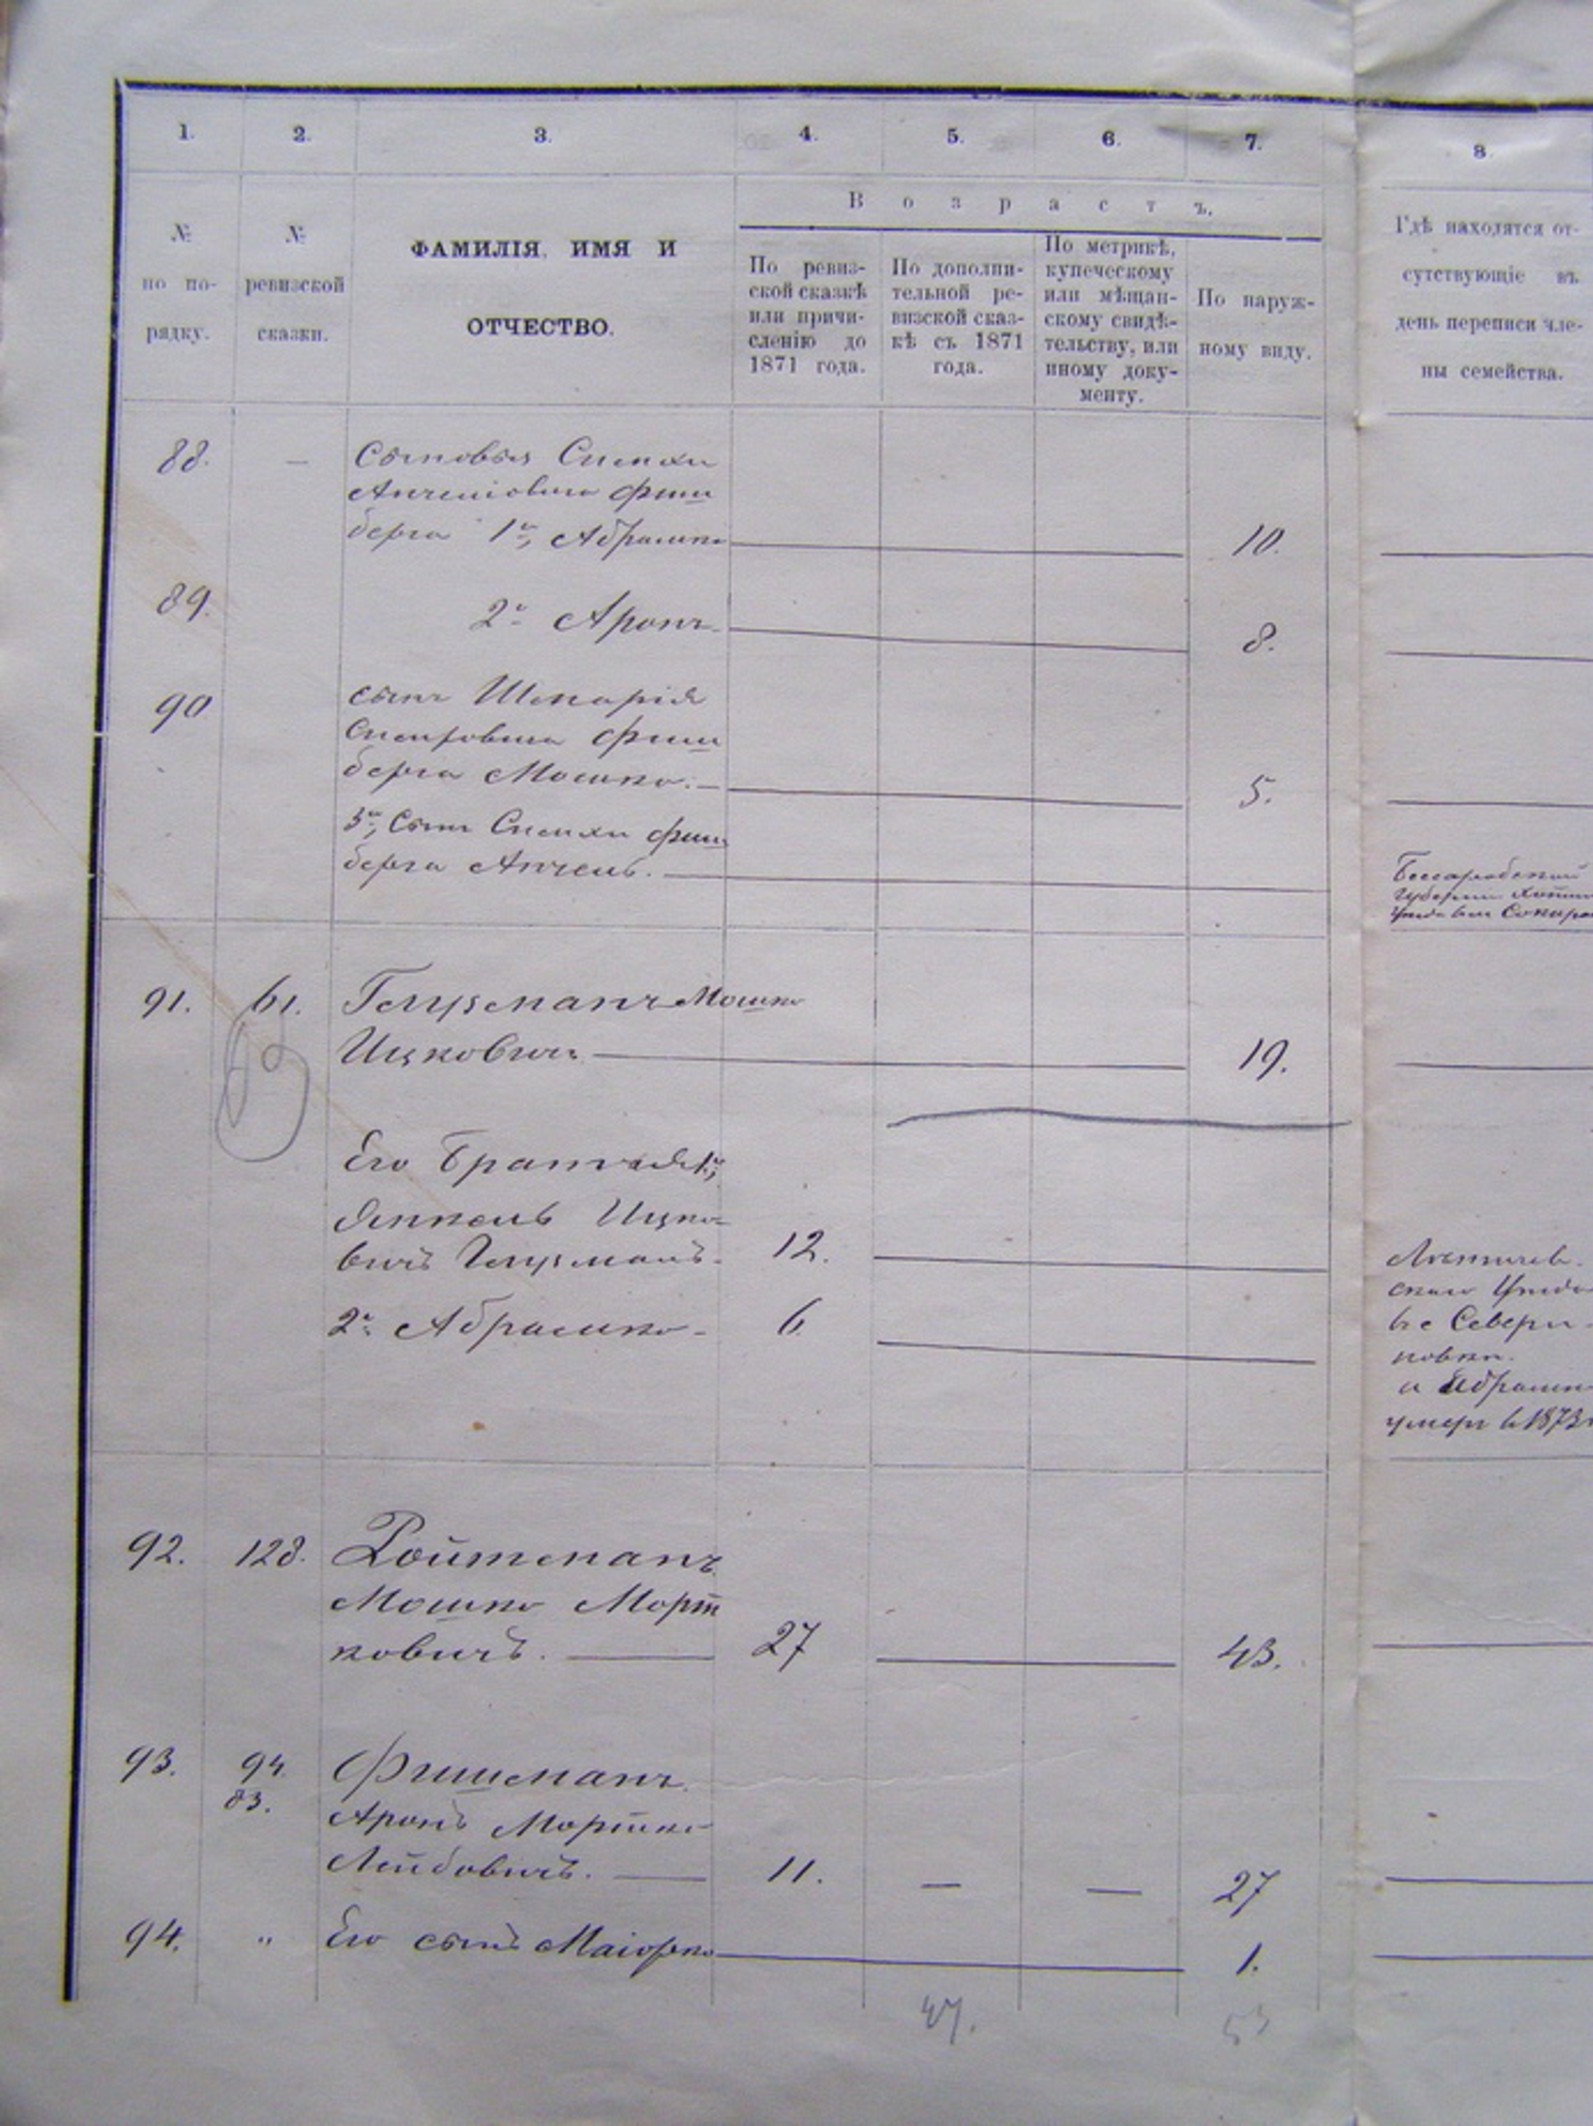 1. 2. 3. 4. 5. 6. 7. 8.
Возрастъ.
№
по по-
рядку.
№
ревизской
сказки.
ФАМИЛІЯ, ИМЯ И
ОТЧЕСТВО.
По ревиз-
ской сказкѣ
или причи-
сленію до
1871 года.
По дополни-
тельной ре-
визской сказ-
кѣ съ 1871
года.
По метрикѣ,
купеческому
или мѣщан-
скому свидѣ-
тельству, или
иному доку-
менту.
По наруж-
ному виду.
Гдѣ находятся от-
сутствующіе въ
день переписи чле-
ны семейства.
88. — Сыновья
Фиш
берга 1й, Абрамко 10.
89. 2й Аронъ 8.
90 сынъ
Фиш
берга Мошко. 5.
3й, Сынъ Фиш
берга Анчель.
Бессарабской
Губерніи
91. 61. Мошко
Ицковичъ 19.
69
Его Братья 1й,
Янкель Ицко-
вичъ 12.
2й Абрамко 6
ского Уѣзда
въ с Севери-
новки.
а Абрамко
умеръ въ 1873
92. 128. Ройтманъ
Мошко Морт
ковичъ. 27 43.
93. 94 Фишманъ
83. Аронъ Мортко
Лейбовичъ. 11. — — 27
94. " Его сынъ Маіорко 1.
47. 53